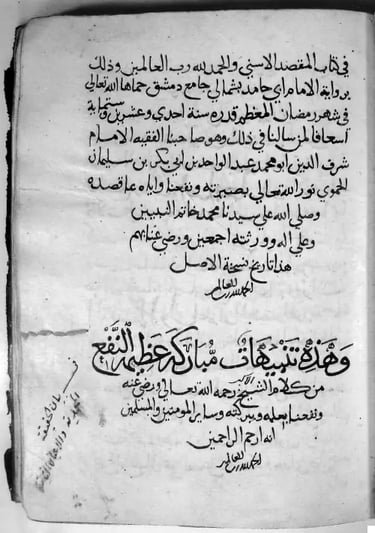 في كتاب المقصد الاسني والحمد لله رب العالمين وذلك
برواية الامام ابي حامد بشمالي جامع دمشق حماها الله تعالي
في شهر رمضان المعظم قدره سنة احدي وعشرين وستماية
اسعافا لمن سالنا في ذلك وهو صاحبنا الفقيه الامام
شرف الدين ابو محمد عبد الواحد بن ابي بكر بن سليمان
الحموي نور الله تعالي بصيرته ونفعنا واياه بما قصده
وصلي الله علي سيدنا محمد خاتم النبيين
وعلي اله وورثته اجمعين ورضي عنا بهم
هذا تاريخ نسخة الاصل
الحمد لله رب العالمين
وهذه تنبيهات مباركة عظيمة النفع
من كلام الشيخ الاكبر رحمه الله تعالي ورضي عنه
ونفعنا بعلمه وببركته وساير المومنين والمسلمين
انه ارحم الراحمين
الحمد لله رب العالمين